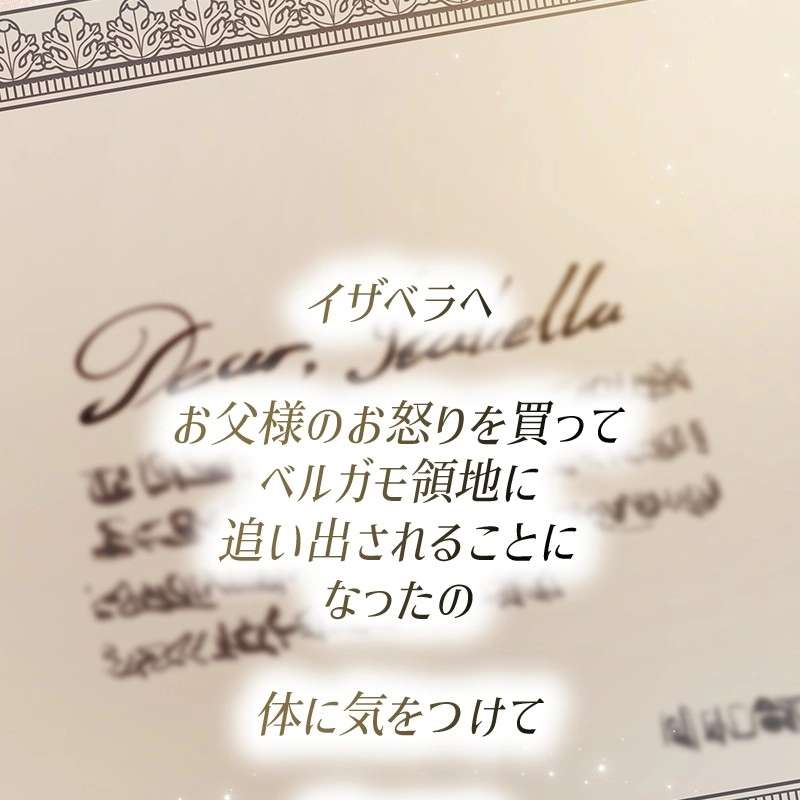 イザベラへ
Dear, Isabella
お父様のお怒りを買って
ベルガモ領地に
追い出されることに
なったの
体に気をつけて